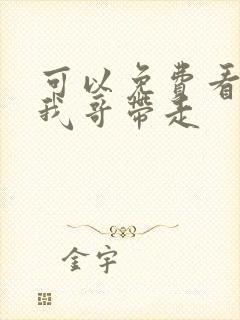 可以免费看
我哥带走
金宇